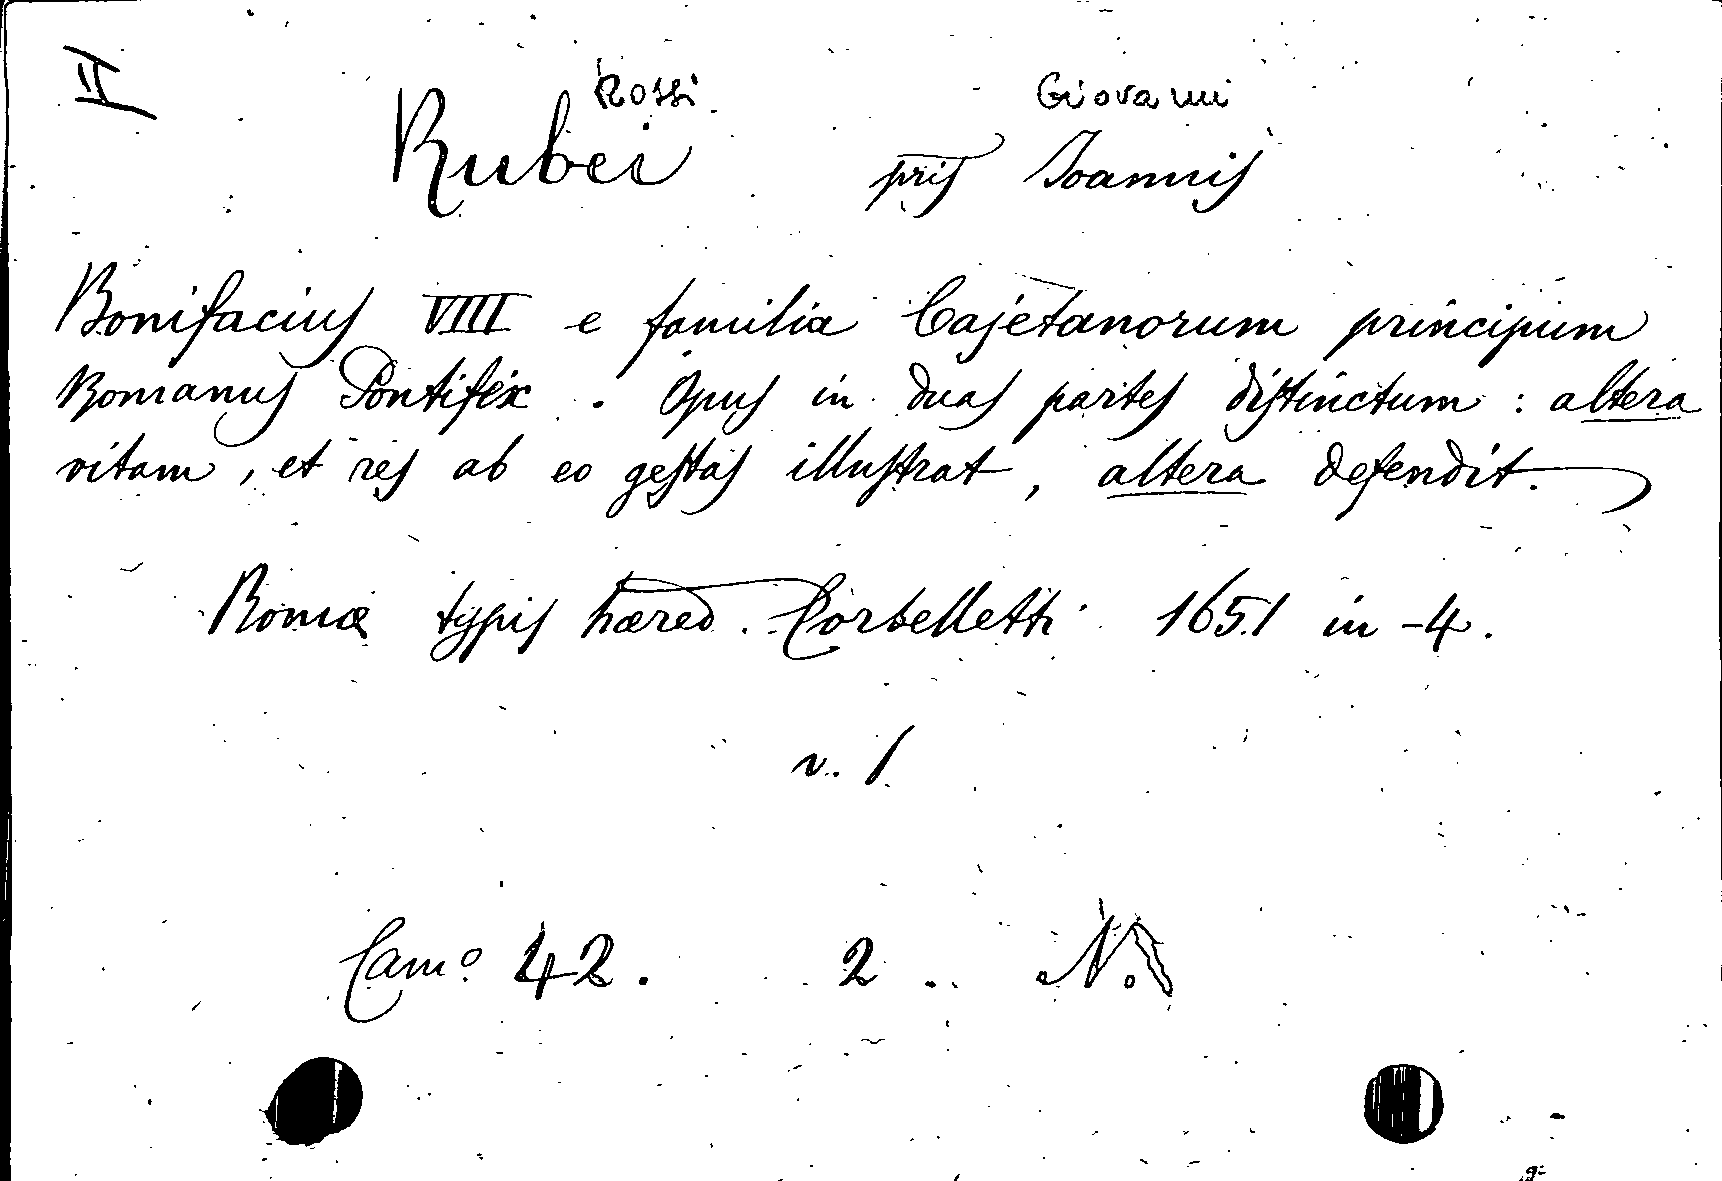 II
Rossi Giovanni
Rubei pris Joannis
Bonifacius VIII e familia Cajetanorum principum
Romanus Pontifex . Opus in duas partes distinctum : altera
vitam , et res ab eo gestas illustrat , altera defendit .
Romæ typis hæred . Corbelletti 1651 in -4 .
v. 1
Cam.º 42 . 2 . N.